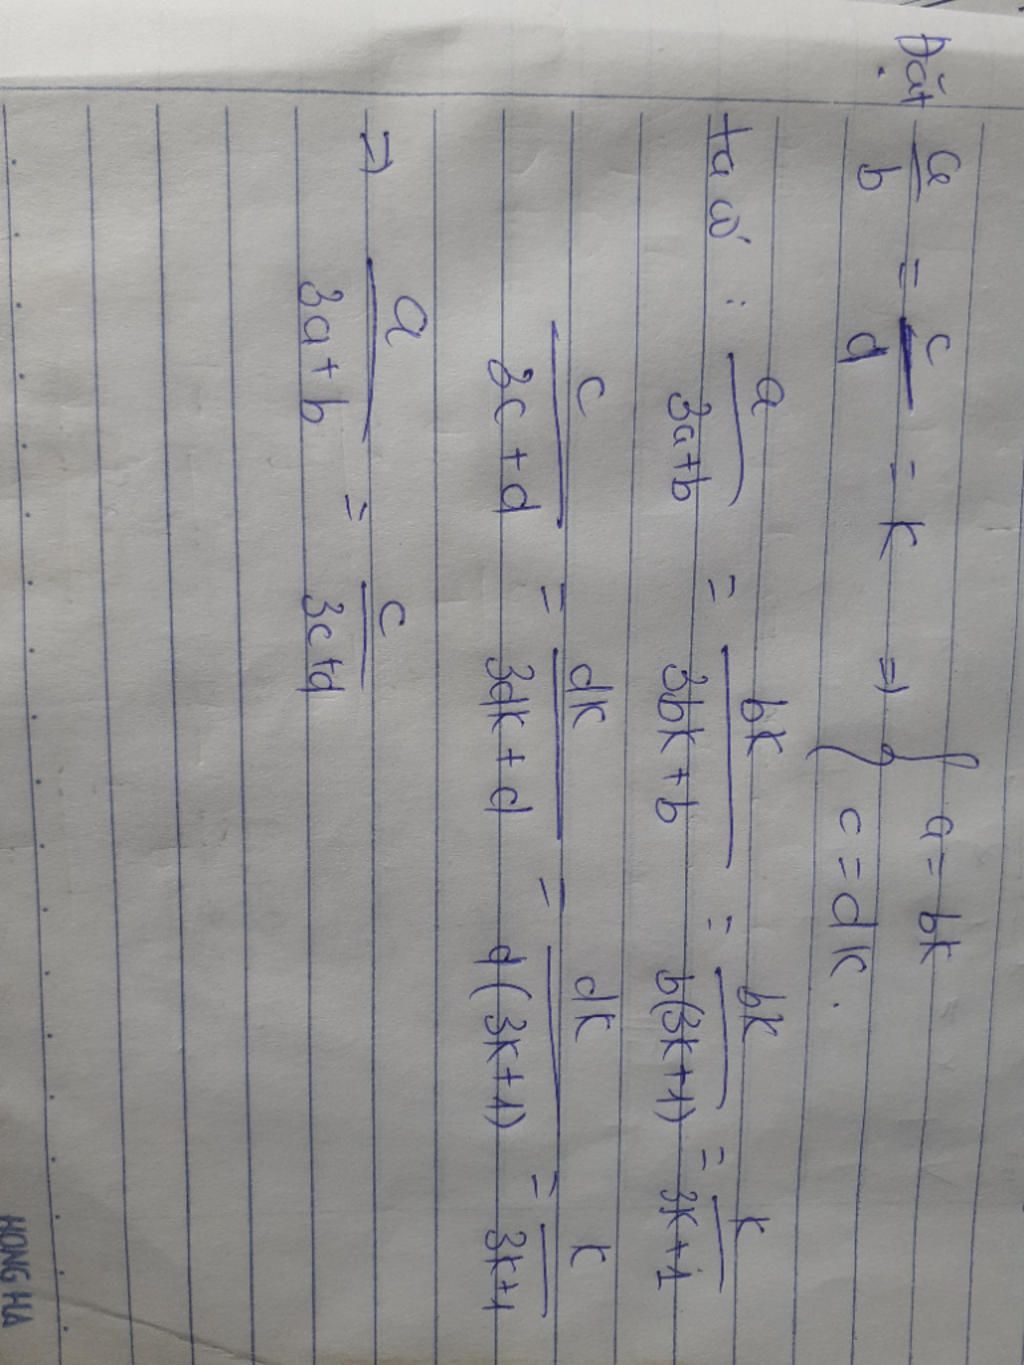 Đặt a/b = c/d = k => { a = bk
c = dk.
ta có : a/(3a+b) = bk/(3bk+b) = bk/(b(3k+1)) = k/(3k+1)
c/(3c+d) = dk/(3dk+d) = dk/(d(3k+1)) = k/(3k+1)
=> a/(3a+b) = c/(3c+d)
HONG HA